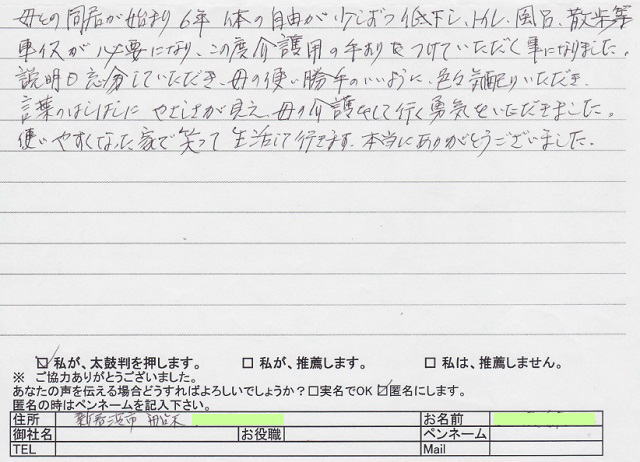 母との同居が始まり 6年 体の自由が少しずつ低下し、トイレ、風呂、散歩等
車イスが必要になり、この度介護用の手すりをつけていただく事になりました。
説明も充分していただき、母の使い勝手のいいように、色々気配りいただき、
言葉のはしばしに やさしさが見え、母の介護をして行く勇気をいただきました。
使いやすくなった家で笑って生活して行きます。本当にありがとうございました。
☑ 私が、太鼓判を押します。 □ 私が、推薦します。 □ 私は、推薦しません。
※ ご協力ありがとうございました。
あなたの声を伝える場合どうすればよろしいでしょうか？□実名でOK ☑匿名にします。
匿名の時はペンネームを記入下さい。
住所 新居浜市 お名前
御社名 お役職 ペンネーム
TEL Mail